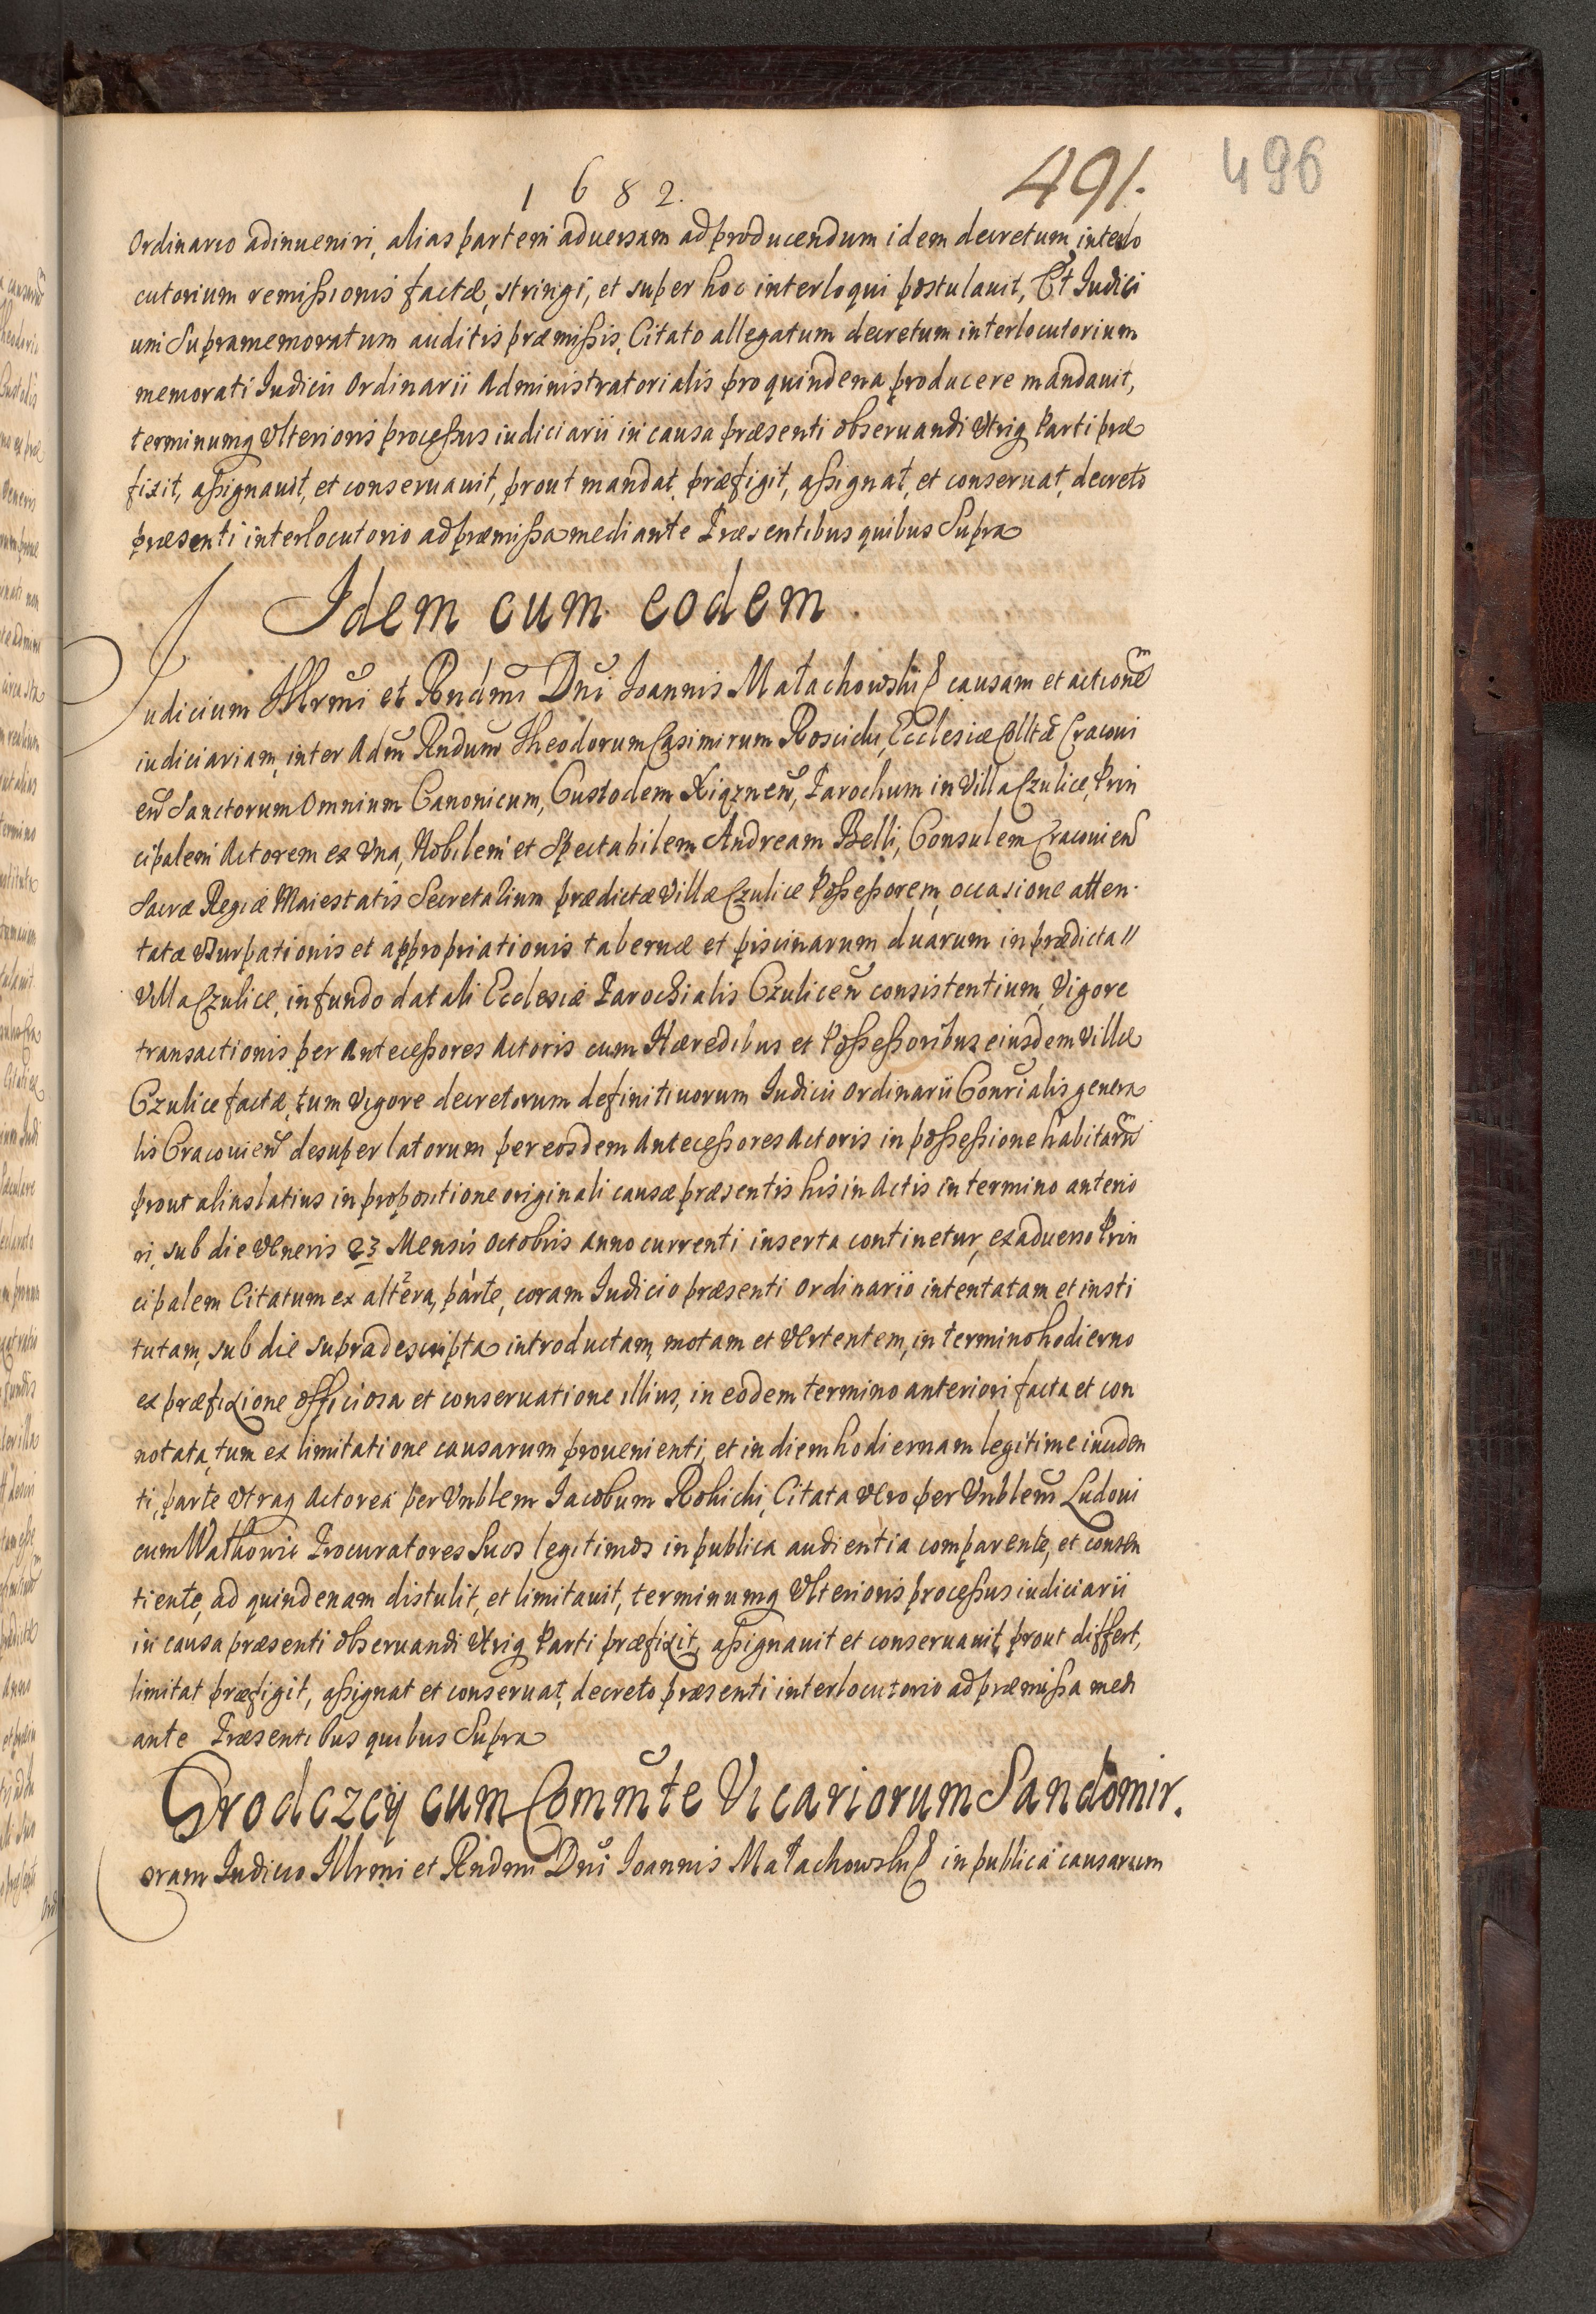 1682.
491.
496
Ordinario adinueniri, alias partem aduersam ad producendum idem decretum interlo
cutorium remissionis factæ, stringi, et super hoc interloqui postulauit, Et Iudici
um Supramemoratum auditis præmissis, Citato allegatum decretum interlocutorium
memorati Iudicii Ordinarii Administratorialis pro quindena producere mandauit,
terminumq Vlterioris processus iudiciarii in causa præsenti obseruandi Vtriq Parti præ
fixit, assignauit, et conseruauit, prout mandat, præfigit, assignat, et conseruat, decreto
præsenti interlocutorio ad præmissa mediante Præsentibus quibus Supra
Idem cum eodem
Iudicium Illrmi et Rndmi Dni Ioannis Małachowski causam et actionem
iudiciariam, inter Adm Rndum Theodorum Casimirum Roscicki, Ecclesiæ Colltæ Cracoui
en Sanctorum Omnium Canonicum, Custodem Xiążnen, Parochum in Villa Czulice, Prin
cipalem Actorem ex Vna, Nobilem et Spectabilem Andream Belli, Consulem Cracouien
Sacræ Regiæ Maiestatis Secretarium prædictæ Villæ Czulice Possessorem, occasione atten-
tatæ Vsurpationis et appropriationis tabernæ et piscinarum duarum in prædicta //
Villa Czulice, in fundo datali Ecclesiæ Parochialis Czulicen consistentium, Vigore
transactionis per Antecessores Actoris cum Hæredibus et Possessoribus eiusdem Villæ
Czulice factæ, tum Vigore decretorum definitiuorum Iudicii Ordinarii Consrialis genera
lis Cracouien desuper latorum per eosdem Antecessores Actoris in possessione habitarum
prout alias latius in propositione originali causæ præsentis his in Actis in termino anterio
ri, sub die Veneris 23 Mensis Octobris Anno currenti inserta continetur, ex aduerso Prin
cipalem Citatum ex altera, parte, coram Iudicio præsenti Ordinario intentatam et insti
tutam, sub die supradescripta introductam, motam et Vertentem, in termino hodierno
ex præfixione officiosa et conseruatione illius, in eodem termino anteriori facta et con
notata, tum ex limitatione causarum prouenienti, et in diem hodiernam legitime inciden
ti, parte Vtraq Actorea per Vnblem Iacobum Rohicki, Citata Vero per Vnblem Ludoui
cum Wathowic Procuratores Suos legitimos in publica audientia comparente, et consen
tiente, ad quindenam distulit, et limitauit, terminumq Vlterioris processus iudiciarii
in causa præsenti obseruandi Vtriq Parti præfixit, assignauit et conseruauit, prout differt,
limitat præfigit, assignat et conseruat, decreto præsenti interlocutorio ad præmissa medi
ante Præsentibus quibus Supra
Grodczcij cum Commte Vicariorum Sandomir.
Coram Iudicio Illrmi et Rndmi Dni Ioannis Małachowski in publica causarum